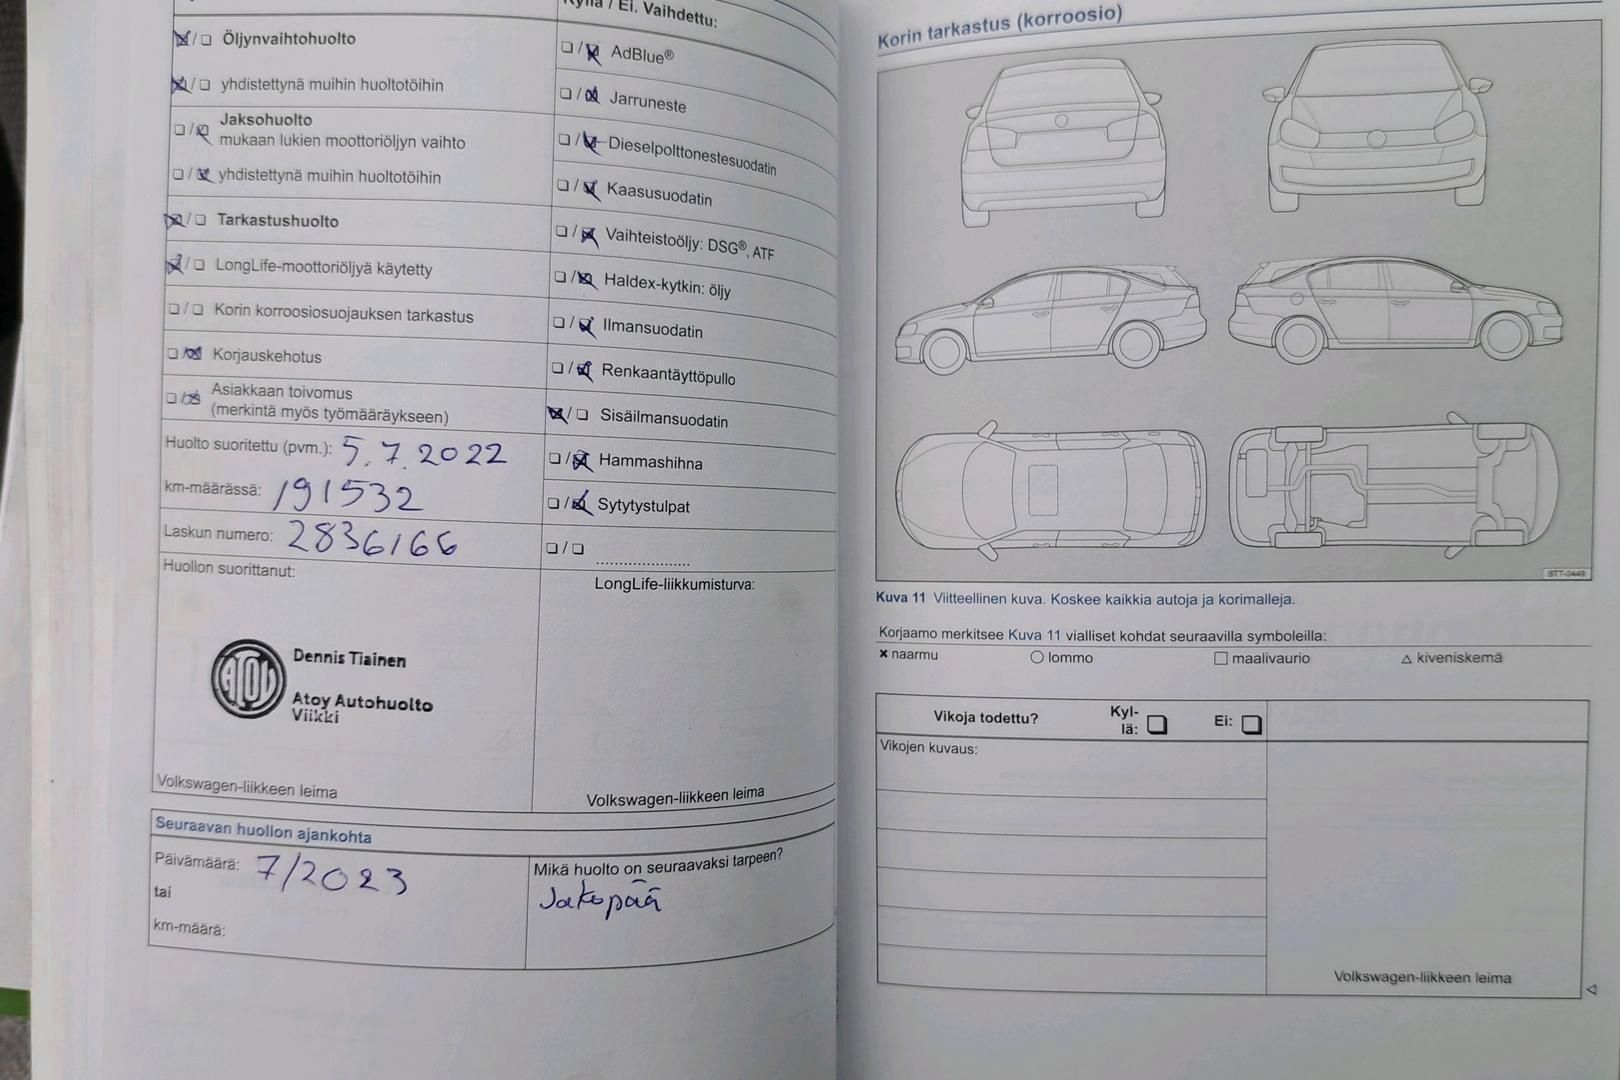 Kyllä / Ei. Vaihdettu:
☒/☐ Öljynvaihtohuolto
☒/☐ yhdistettynä muihin huoltotöihin
☐/☒ Jaksohuolto
mukaan lukien moottoriöljyn vaihto
☐/☒ yhdistettynä muihin huoltotöihin
☒/☐ Tarkastushuolto
☒/☐ LongLife-moottoriöljyä käytetty
☐/☐ Korin korroosiosuojauksen tarkastus
☐/☒ Korjauskehotus
☐/☒ Asiakkaan toivomus
(merkintä myös työmääräykseen)
Huolto suoritettu (pvm.): 5.7.2022
km-määrässä: 191532
Laskun numero: 2836166
Huollon suorittanut:
ATOY
Dennis Tiainen
Atoy Autohuolto
Viikki
Volkswagen-liikkeen leima
☐/☒ AdBlue®
☐/☒ Jarruneste
☐/☒ Dieselpolttonestesuodatin
☐/☒ Kaasusuodatin
☐/☒ Vaihteistoöljy: DSG®, ATF
☐/☒ Haldex-kytkin: öljy
☐/☒ Ilmansuodatin
☐/☒ Renkaantäyttöpullo
☒/☐ Sisäilmansuodatin
☐/☒ Hammashihna
☐/☒ Sytytystulpat
☐/☐ .....................
LongLife-liikkumisturva:
Volkswagen-liikkeen leima
Seuraavan huollon ajankohta
Päivämäärä: 7/2023
tai
km-määrä:
Mikä huolto on seuraavaksi tarpeen?
Jakopää
Korin tarkastus (korroosio)
BTT-0449
Kuva 11 Viitteellinen kuva. Koskee kaikkia autoja ja korimalleja.
Korjaamo merkitsee Kuva 11 vialliset kohdat seuraavilla symboleilla:
× naarmu ○ lommo □ maalivaurio △ kiveniskemä
Vikoja todettu? Kyl-
lä: ☐ Ei: ☐
Vikojen kuvaus:
Volkswagen-liikkeen leima